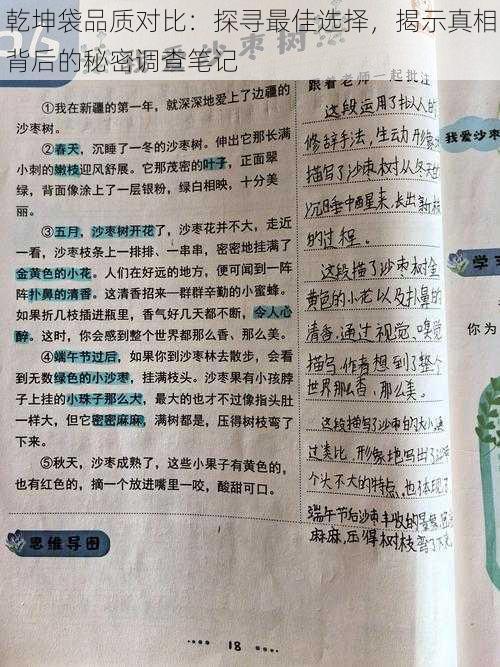 乾坤袋品质对比：探寻最佳选择，揭示真相
背后的秘密调查笔记
沙枣树
跟着老师一起批注
①我在新疆的第一年，就深深地爱上了边疆的
沙枣树。
②春天，沉睡了一冬的沙枣树。伸出它那长满
小刺的嫩枝迎风舒展。它那茂密的叶子，正面翠
绿，背面像涂上了一层银粉，绿白相映，十分美
丽。
③五月，沙枣树开花了，沙枣花并不大，走近
一看，沙枣枝条上一排排、一串串，密密地挂满了
金黄色的小花。人们在好远的地方，便可闻到一阵
阵扑鼻的清香。这清香招来一群群辛勤的小蜜蜂。
如果折几枝插进瓶里，香气好几天都不断，令人心
醉。这时，你会感到整个世界都那么香、那么美。
④端午节过后，如果你到沙枣林去散步，会看
到无数绿色的小沙枣，挂满枝头。沙枣果有小孩脖
子上挂的小珠子那么大，最大的也才不过像指头肚
一样大，但它密密麻麻，满树都是，压得树枝弯了
下来。
⑤秋天，沙枣成熟了，这些小果子有黄色的，
也有红色的，摘一个放进嘴里一咬，酸甜可口。
这段运用了拟人的
修辞手法，生动形象
描写了沙枣树从冬天的
沉睡中醒来，长出新枝
的过程。
这段描了沙枣树金
黄色的小花以及扑鼻的
清香，通过视觉、嗅觉
描写，作者想到了整个
世界那么香、那么美。
这段描写了沙枣的大小，通
过类比，形象地写出了沙枣
个头不大的特点，也体现了
端午节后沙枣丰收的景象，密密
麻麻，压得树枝弯了下来。
思维导图
18
我爱沙枣
学习
你为